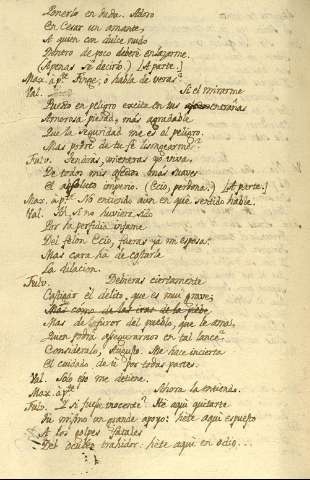 Ponerlo en duda. Adoro
En Cesar un amante,
A quien con dulce nudo
Dentro de poco deberé enlazarme.
(Apenas sé decirlo.) [A parte.]
Max. apte. Finge, ó habla de veras?
Val. Si el mirarme
Puesto en peligro excita en tus entrañas
Amorosa piedad, mas agradable
Que la seguridad me es el peligro.
Mas podré de tu fe lisongearme?
Fulv. Tendras, mientras yo viva,
De todos mis afectos
El absoluto imperio. (Ecio, perdona.) [A parte.]
Max. apte. No entiendo aun en qué sentido habla.
Val. Ah si no huviera sido
Por la perfidia infame
Del felon Ecio, fueras ya mi esposa.
Mas cara ha de costarle
La dilacion.
Fulv. Debieras ciertamente
Castigar el delito, que es muy grave;
Mas como de las iras de la plebe
Mas de el furor del pueblo, que le ama,
Quien podrá asegurarnos en tal lance?
Consideralo, Augusto. Me hace incierta
El cuidado de ti por todas partes.
Val. Solo eso me detiene.
Max. apte. Ahora la entiendo.
Fulv. Y si fuese inocente? He aqui quitarte
Tu mismo un grande apoyo: hete aqui expuesto
A los golpes fatales
Del oculto trahidor: hete aqui en odio...